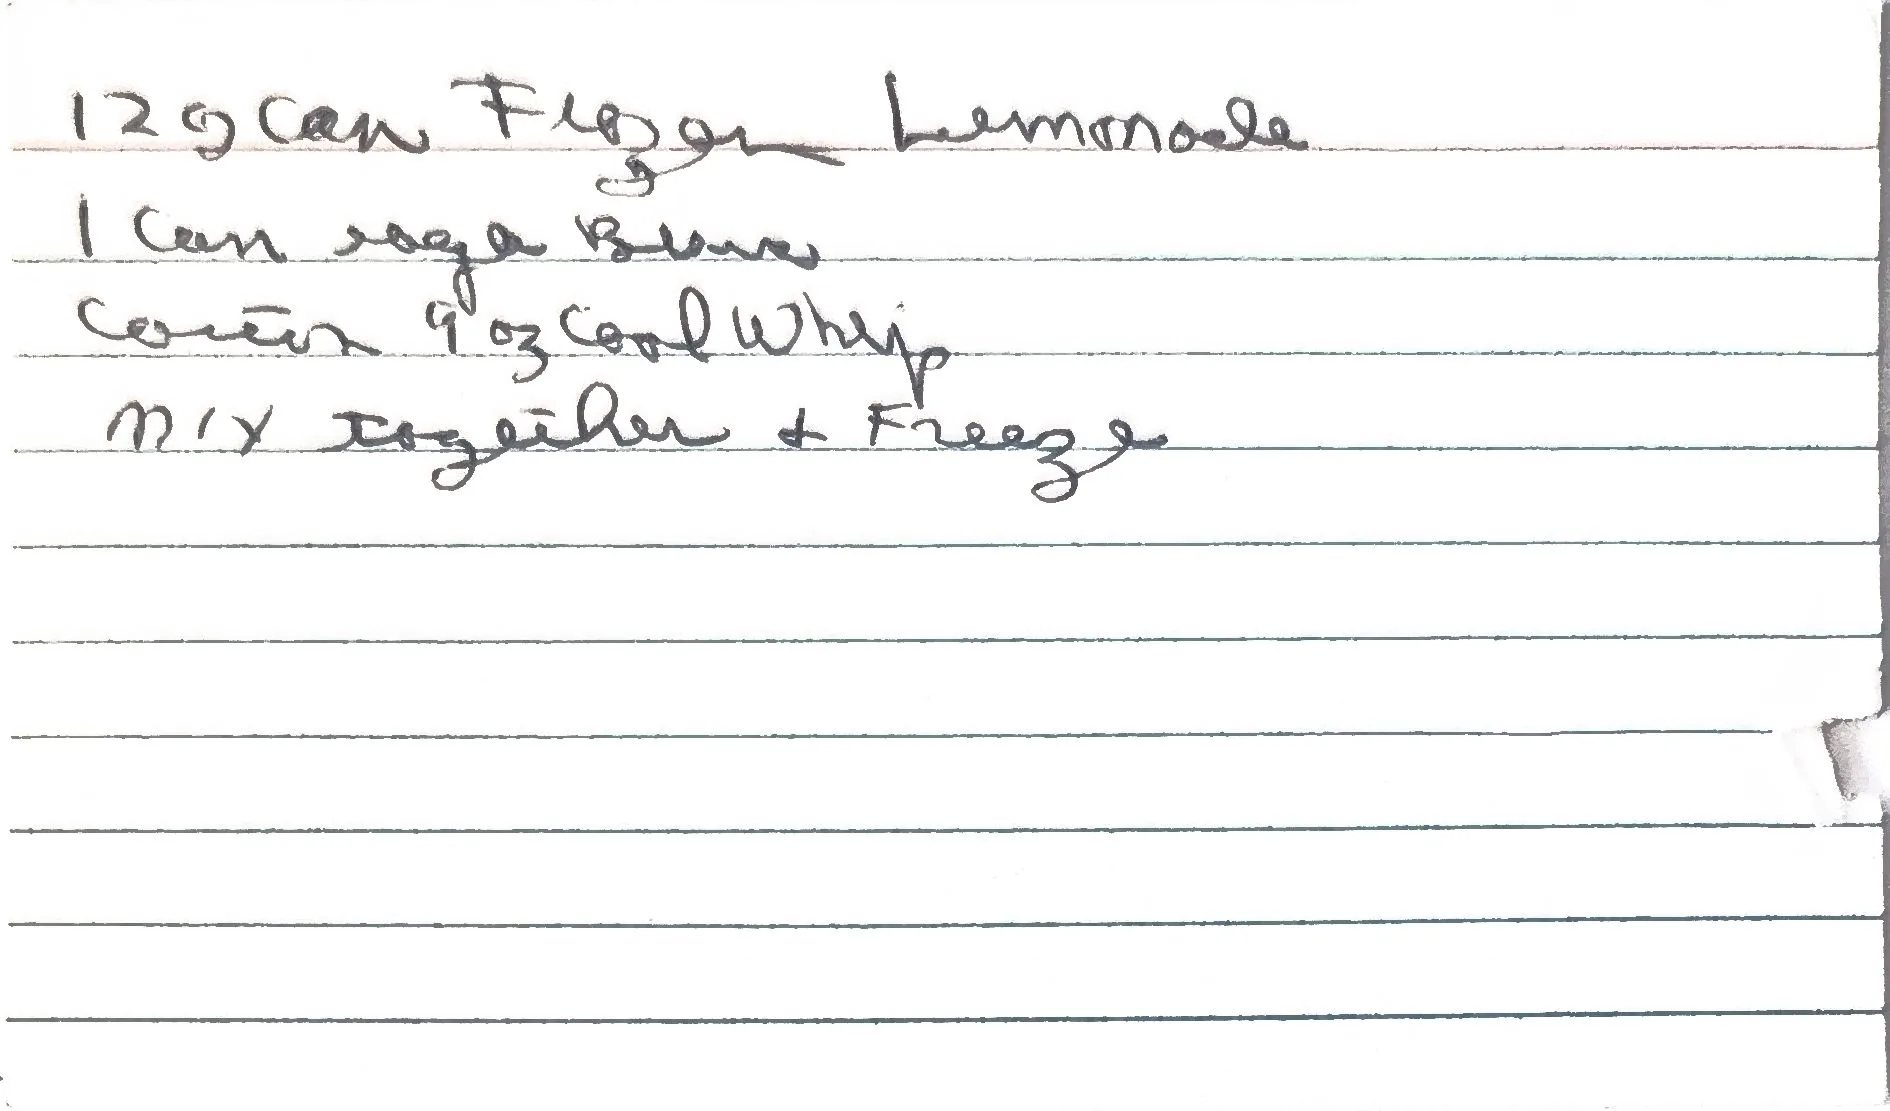 12 g can Frozen Lemonade
1 Can Eagle Brand
9 oz Cool Whip
mix together & Freeze